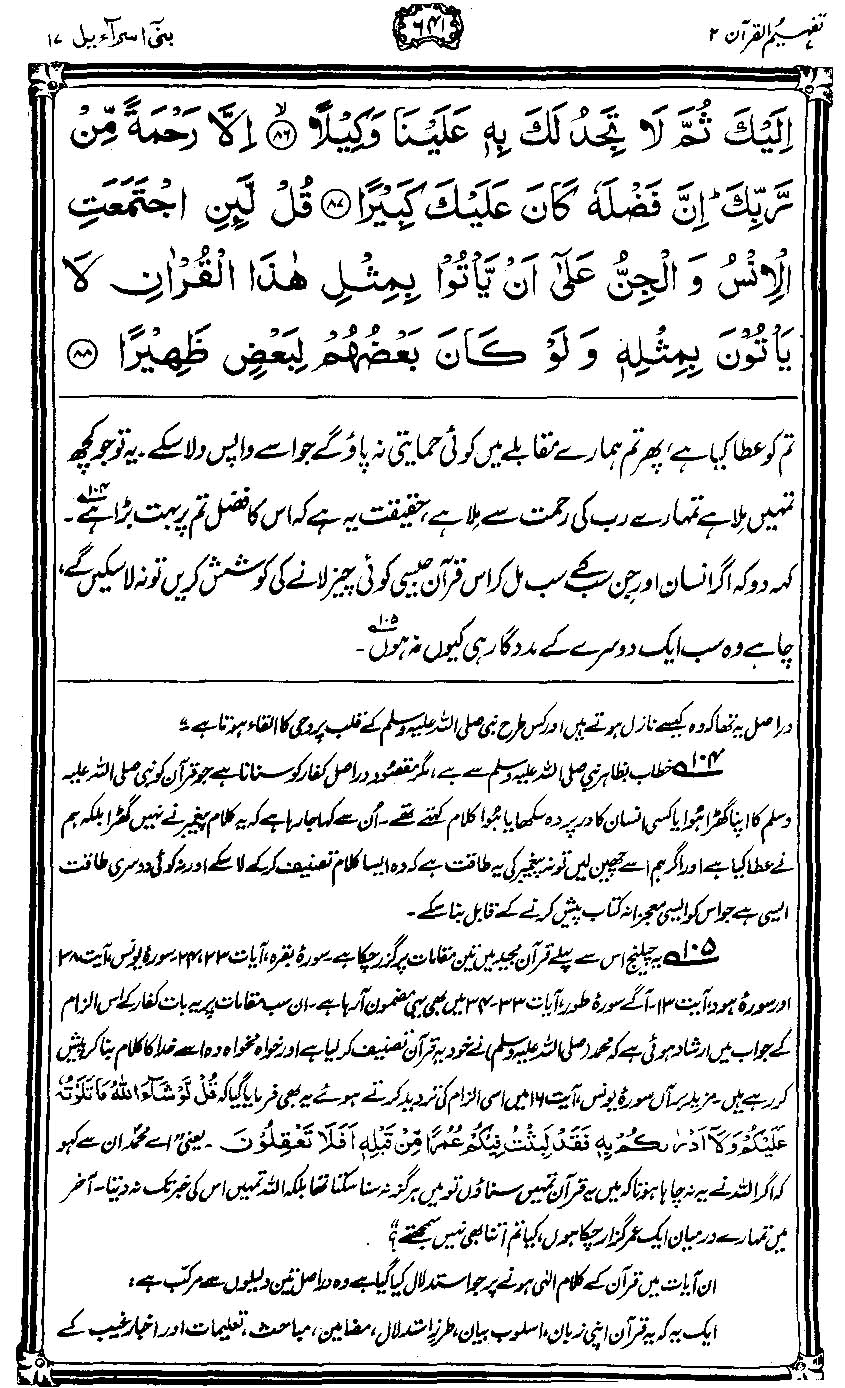 تفہیم القرآن ۲
۶۴۱
بنی اسرآءیل ۱۷
اِلَيْكَ ثُمَّ لَا تَجِدُ لَكَ بِهٖ عَلَيْنَا وَكِيْلًا ﴿۸۶﴾ اِلَّا رَحْمَةً مِّنْ
رَّبِّكَ ؕ اِنَّ فَضْلَهٗ كَانَ عَلَيْكَ كَبِيْرًا ﴿۸۷﴾ قُلْ لَّىِٕنِ اجْتَمَعَتِ
الْاِنْسُ وَ الْجِنُّ عَلٰۤى اَنْ يَّاْتُوْا بِمِثْلِ هٰذَا الْقُرْاٰنِ لَا
يَاْتُوْنَ بِمِثْلِهٖ وَ لَوْ كَانَ بَعْضُهُمْ لِبَعْضٍ ظَهِيْرًا ﴿۸۸﴾
تم کو عطا کیا ہے، پھر تم ہمارے مقابلے میں کوئی حمایتی نہ پاؤ گے جو اسے واپس دلا سکے۔ یہ تو جو کچھ
تمہیں ملا ہے تمہارے رب کی رحمت سے ملا ہے، حقیقت یہ ہے کہ اس کا فضل تم پر بہت بڑا ہے۱۰۴۔
کہہ دو کہ اگر انسان اور جن سب کے سب مل کر اس قرآن جیسی کوئی چیز لانے کی کوشش کریں تو نہ لا سکیں گے،
چاہے وہ سب ایک دوسرے کے مددگار ہی کیوں نہ ہوں۱۰۵۔
دراصل یہ تھا کہ وہ کیسے نازل ہوتے ہیں اور کس طرح نبی صلی اللہ علیہ وسلم کے قلب پر وحی کا القاء ہوتا ہے"
۱۰۴ خطاب بظاہر نبی صلی اللہ علیہ وسلم سے ہے، مگر مقصود دراصل کفار کو سنانا ہے جو قرآن کو نبی صلی اللہ علیہ
وسلم کا اپنا گھڑا ہوا یا کسی انسان کا در پردہ سکھایا ہوا کلام کہتے تھے۔ اُن سے کہا جا رہا ہے کہ یہ کلام پیغمبر نے نہیں گھڑا بلکہ ہم
نے عطا کیا ہے اور اگر ہم اسے چھین لیں تو نہ پیغمبر کی یہ طاقت ہے کہ وہ ایسا کلام تصنیف کر کے لا سکے اور نہ کوئی دوسری طاقت
ایسی ہے جو اس کو ایسی معجزانہ کتاب پیش کرنے کے قابل بنا سکے۔
۱۰۵ یہ چیلنج اس سے پہلے قرآن مجید میں تین مقامات پر گزر چکا ہے۔ سورۂ بقرہ، آیات ۲۳، ۲۴۔ سورۂ یونس، آیت ۳۸
اور سورۂ ہود، آیت ۱۳۔ آگے سورۂ طور، آیات ۳۳-۳۴ میں بھی یہی مضمون آ رہا ہے۔ ان سب مقامات پر یہ بات کفار کے اس الزام
کے جواب میں ارشاد ہوئی ہے کہ محمد (صلی اللہ علیہ وسلم) نے خود یہ قرآن تصنیف کر لیا ہے اور خواہ مخواہ وہ اسے خدا کا کلام بنا کر پیش
کر رہے ہیں۔ مزید برآں سورۂ یونس، آیت ۱۶ میں اسی الزام کی تردید کرتے ہوئے یہ بھی فرمایا گیا کہ قُلْ لَّوْ شَآءَ اللّٰهُ مَا تَلَوْتُهٗ
عَلَيْكُمْ وَلَاۤ اَدْرٰىكُمْ بِهٖ فَقَدْ لَبِثْتُ فِيْكُمْ عُمُرًا مِّنْ قَبْلِهٖ اَفَلَا تَعْقِلُوْنَ۔ یعنی "اے محمدؐ ان سے کہو
کہ اگر اللہ نے یہ نہ چاہا ہوتا کہ میں یہ قرآن تمہیں سناؤں تو میں ہرگز نہ سنا سکتا تھا بلکہ اللہ تمہیں اس کی خبر تک نہ دیتا۔ آخر
میں تمہارے درمیان ایک عمر گزار چکا ہوں، کیا تم اتنا بھی نہیں سمجھتے؟"
ان آیات میں قرآن کے کلام الٰہی ہونے پر جو استدلال کیا گیا ہے وہ دراصل تین دلیلوں سے مرکب ہے:
ایک یہ کہ یہ قرآن اپنی زبان، اسلوب بیان، طرز استدلال، مضامین، مباحث، تعلیمات اور اخبار غیب کے